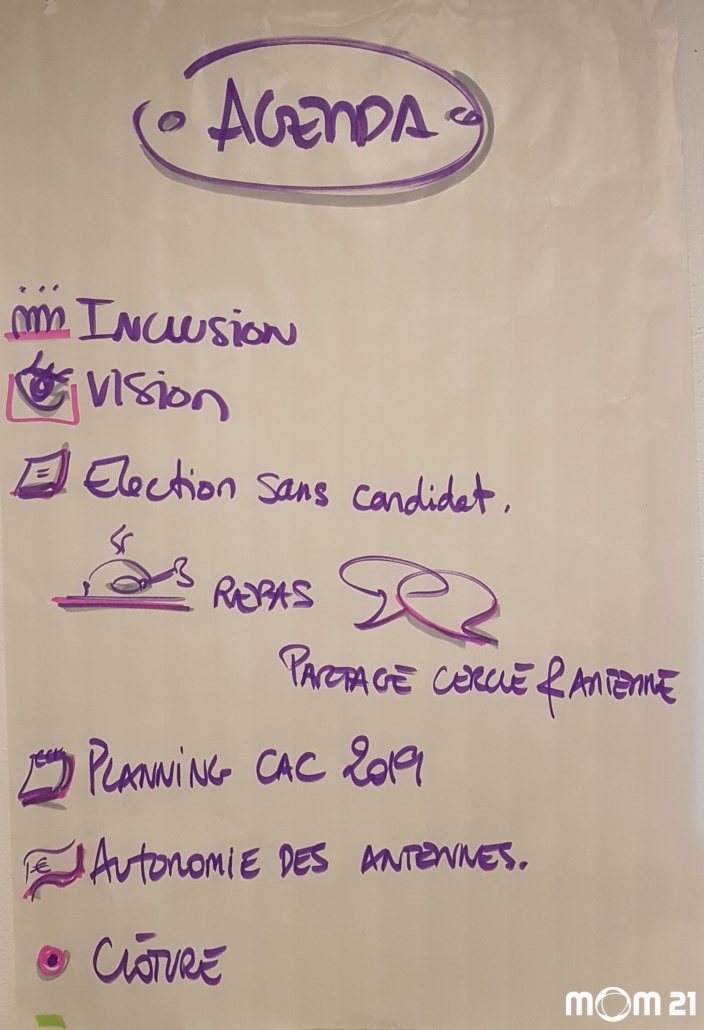 AGENDA
INCLUSION
VISION
Election sans candidat.
REPAS
PARTAGE CERCLE & ANTENNE
PLANNING CAC 2019
1€
AUTONOMIE DES ANTENNES.
CLÔTURE
MOM 21